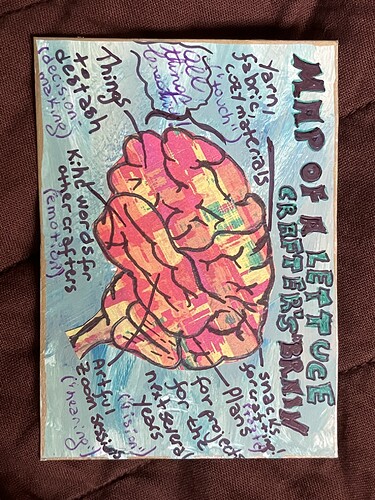 MAP OF A LETTUCE
CRAFTER'S BRAIN
yarn/
fabric/
cozy materials
(touch)
all
things
creative
Things
to stash
(decision
making)
Kind words for
other crafters
(emotion)
Artful
Zoom sessions
(hearing)
(vision)
Plans
for projects
for
next several
years
snacks
(taste)